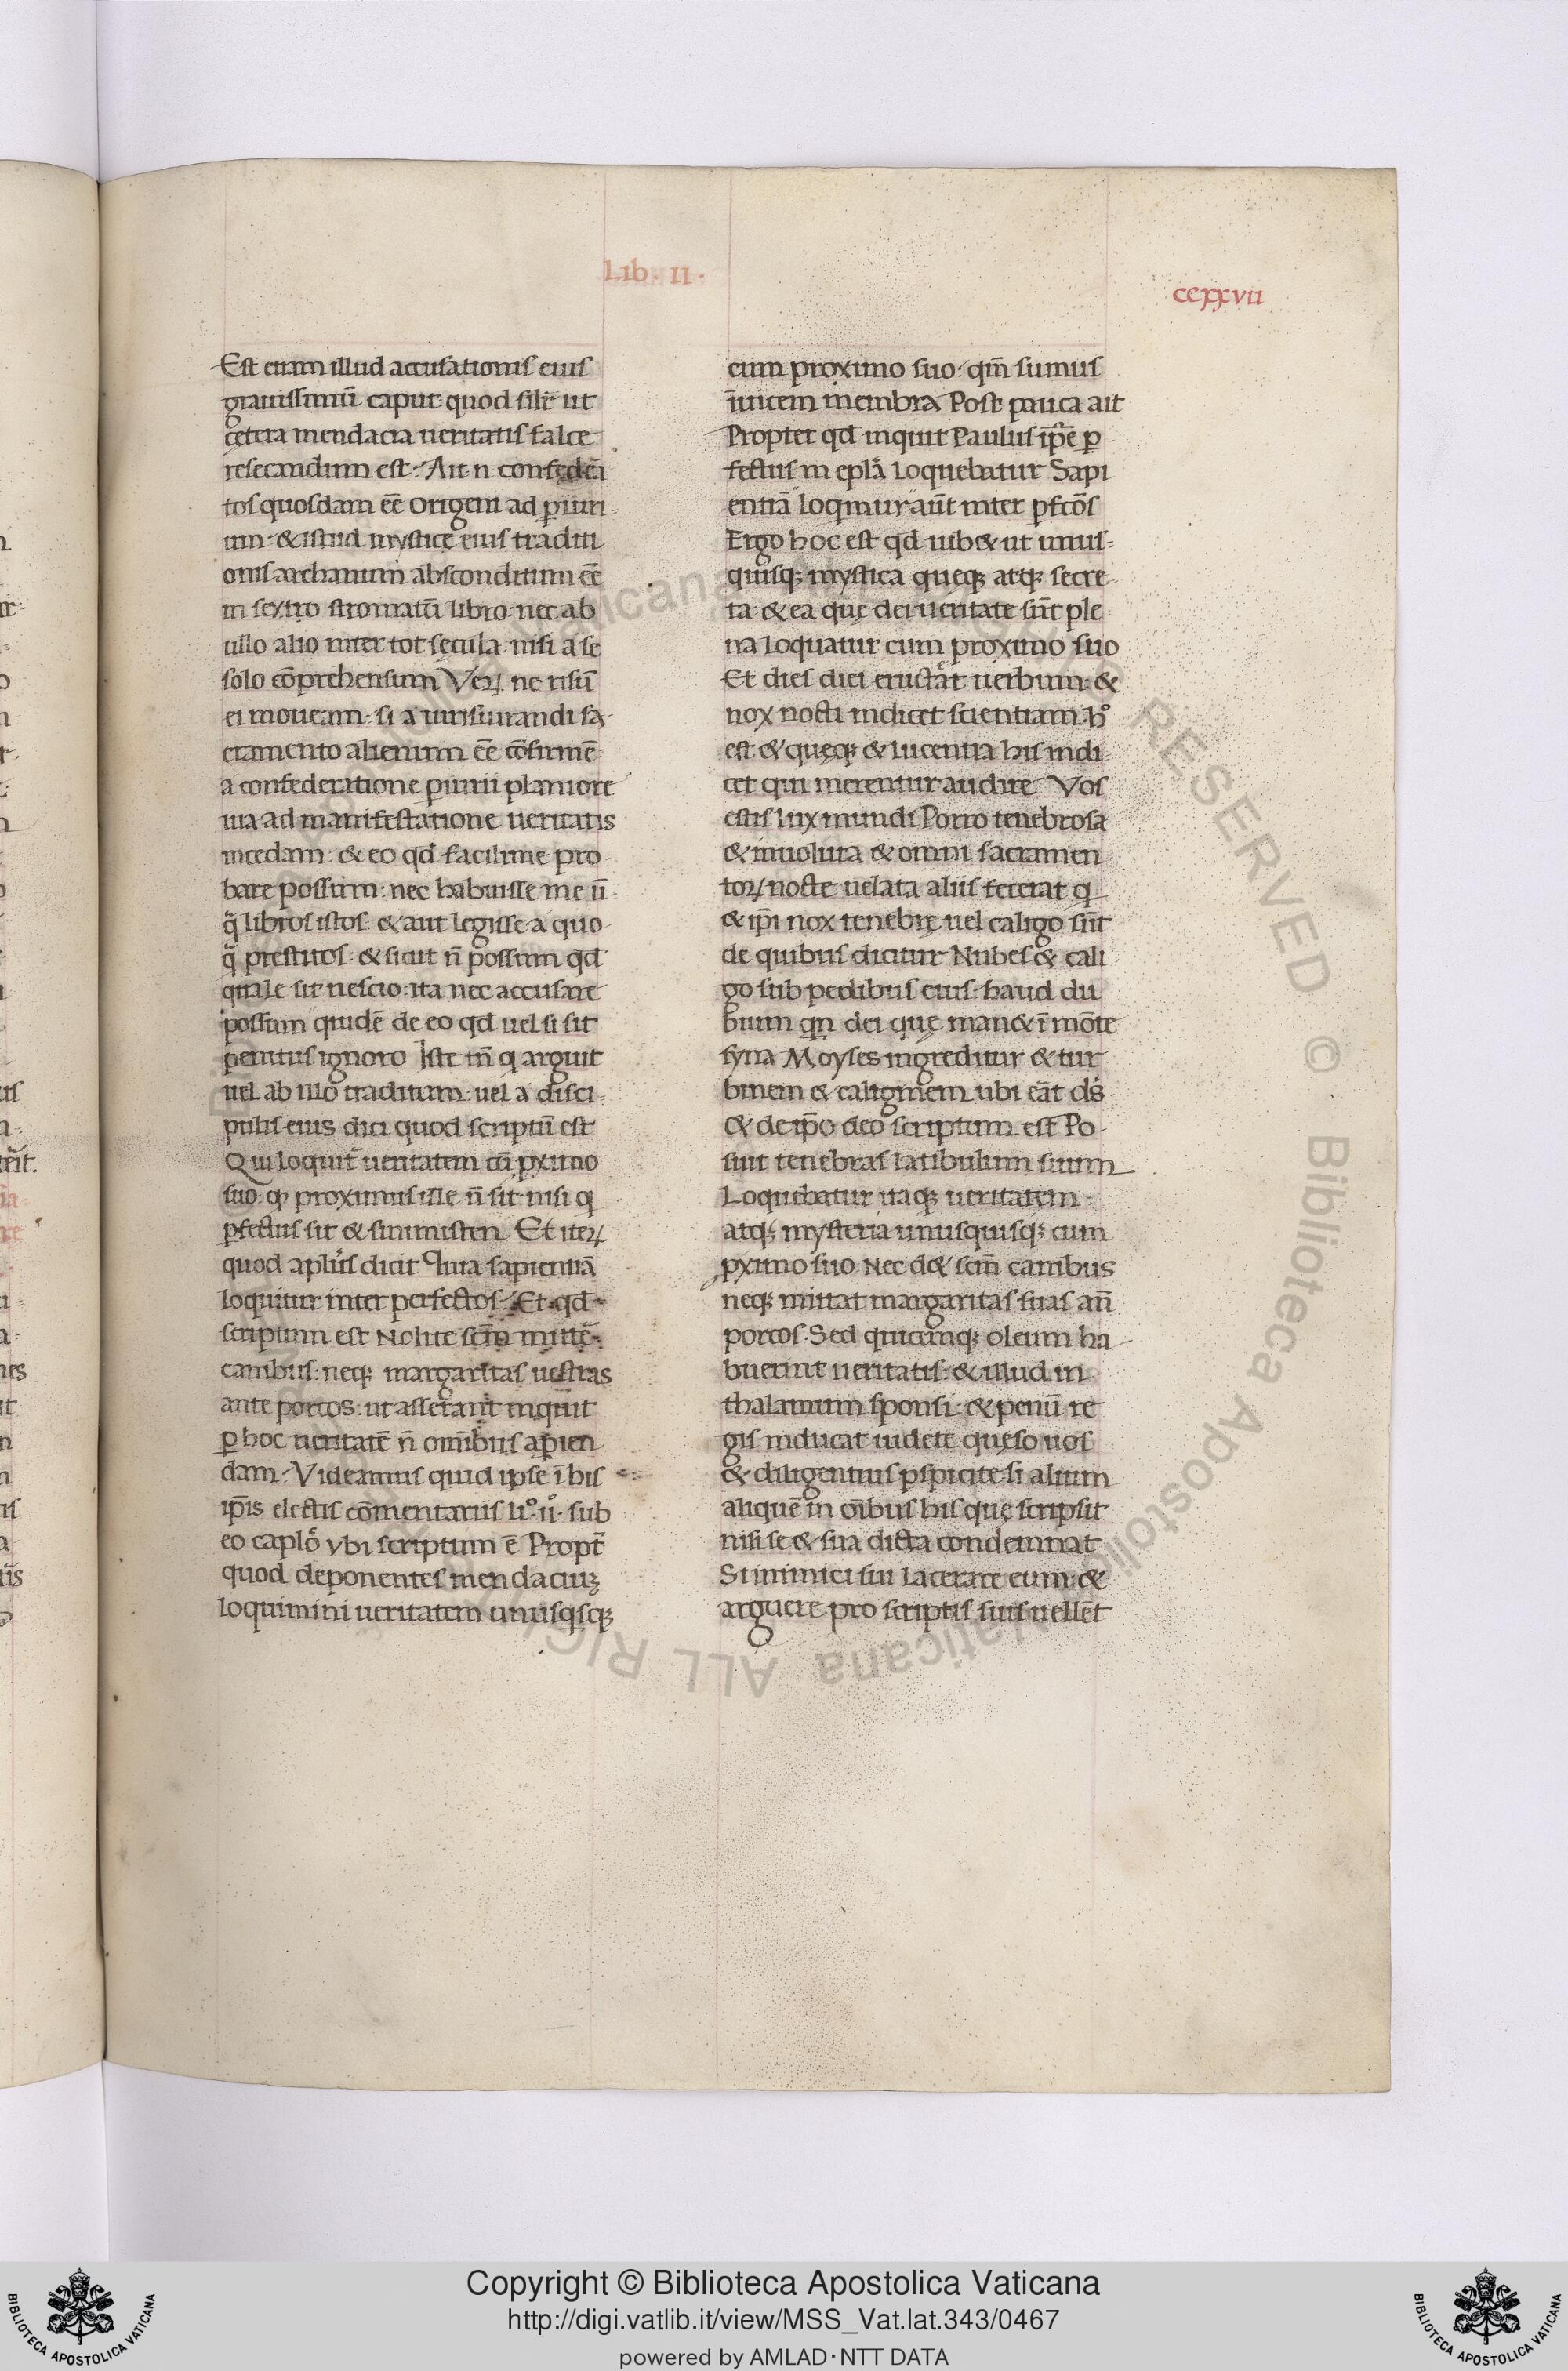 Lib · II ·
ccxxvii
Est etiam illud accusationis eius
grauissimū caput quod silr̄ ut
cętera mendacia ueritatis falce
resecandum est. Ait n confęderā
tos quosdam eē Origeni ad ꝑiuri
um · & istud mystice eius traditi
onis archanum absconditum eē
in sexto stromatū libro · nec ab
ullo alio inter tot sęcula · nisi a se
solo cōprehensum Veꝝ ne risū
ei moueam · si a iurisiurandi sa
cramento alienum eē cōfirmē
a confederatione ꝑiurii planiore
uia ad manifestatione ueritatis
incedam : & eo qd facilime pro
bare possum : nec habuisse me ū
q̄ libros istos : & aut legisse a quo
q̄ prestitos : & sicut n̄ possum qd
quale sit nescio : ita nec accusare
possum quidē de eo qd uel si sit
penitus ignoro Iste tn̄ q arguit
uel ab illo traditum : uel a disci
pulis eius dici quod scriptū est
Qui loquit̄ ueritatem cū ꝓximo
suo : ꝙ proximus ille n̄ sit nisi q
ꝑfectus sit & sinmisten Et iteꝝ
quod apl̄us dicit Quia sapientiā
loquitur inter perfectos. Et qd
scriptum est Nolite scm̄ mittē
canibus : neqꝫ margaritas uestras
ante porcos : ut asserant inquit
ꝑ hoc ueritatē n̄ omībus aꝑien
dam · Videamus quid ipse ī his
ip̄is electis cōmentariis li.° ii° sub
eo caplo ubi scriptum ē Propt̄
quod deponentes mendaciuꝫ
loquimini ueritatem unusqsqꝫ
cum proximo suo · qm̄ sumus
īuicem membra Post pauca ait
Propter qd inquit Paulus ip̄e ꝑ
fectus in eplā loquebatur Sapi
entiā loqmur aūt inter ꝑfcōs
Ergo hoc est qd iub& ut unus
quisqꝫ mystica queqꝫ atqꝫ secre
ta & ea quę dei ueritate sūt ple
na loquatur cum proximo suo
Et dies diei eructār uerbum : &
nox nocti indicet scientiam · h°
est & quęqꝫ & lucentia his indi
cet qui merentur audire Vos
estis lux mundi Porro tenebrosa
& inuoluta & omni sacramen
toꝝ nocte uelata aliis fecerat q
& ip̄i nox tenebrę uel caligo sūt
de quibus dicitur Nubes & cali
go sub pedibus eius · haud du
bium qn dei quę man& ī mōte
syna Moyses ingreditur & tur
binem & caliginem ubi eāt ds̄
& de ip̄o deo scriptum est Po
suit tenebras latibulum suum
Loquebatur itaqꝫ ueritatem
atqꝫ mysteria unusquisqꝫ cum
ꝓximo suo Nec d& scm̄ canibus
neqꝫ mittat margaritas suas an̄
porcos · Sed quicūnqꝫ oleum ha
buerint ueritatis : & illud in
thalamum sponsi : & penū re
gis inducat uidete quęso uos
& diligentius ꝑspicite si alium
aliquē in oībus his quę scripsit
nisi se & sua dicta condemnat
Si inimici sui lacerare eum : &
arguere pro scriptis suis uellēt
Copyright © Biblioteca Apostolica Vaticana
http://digi.vatlib.it/view/MSS_Vat.lat.343/0467
powered by AMLAD·NTT DATA